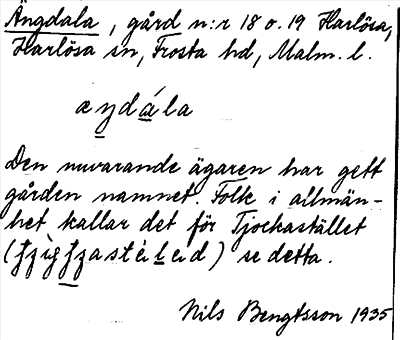 Ängdala, gård n:r 18 o. 19 Harlösa,
Harlösa sn, Frosta hd, Malm. l.
æŋdála
Den nuvarande ägaren har gett
gården namnet. Folk i allmän-
het kallar det för Tjockastället
( ) se detta.
Nils Bengtsson 1935